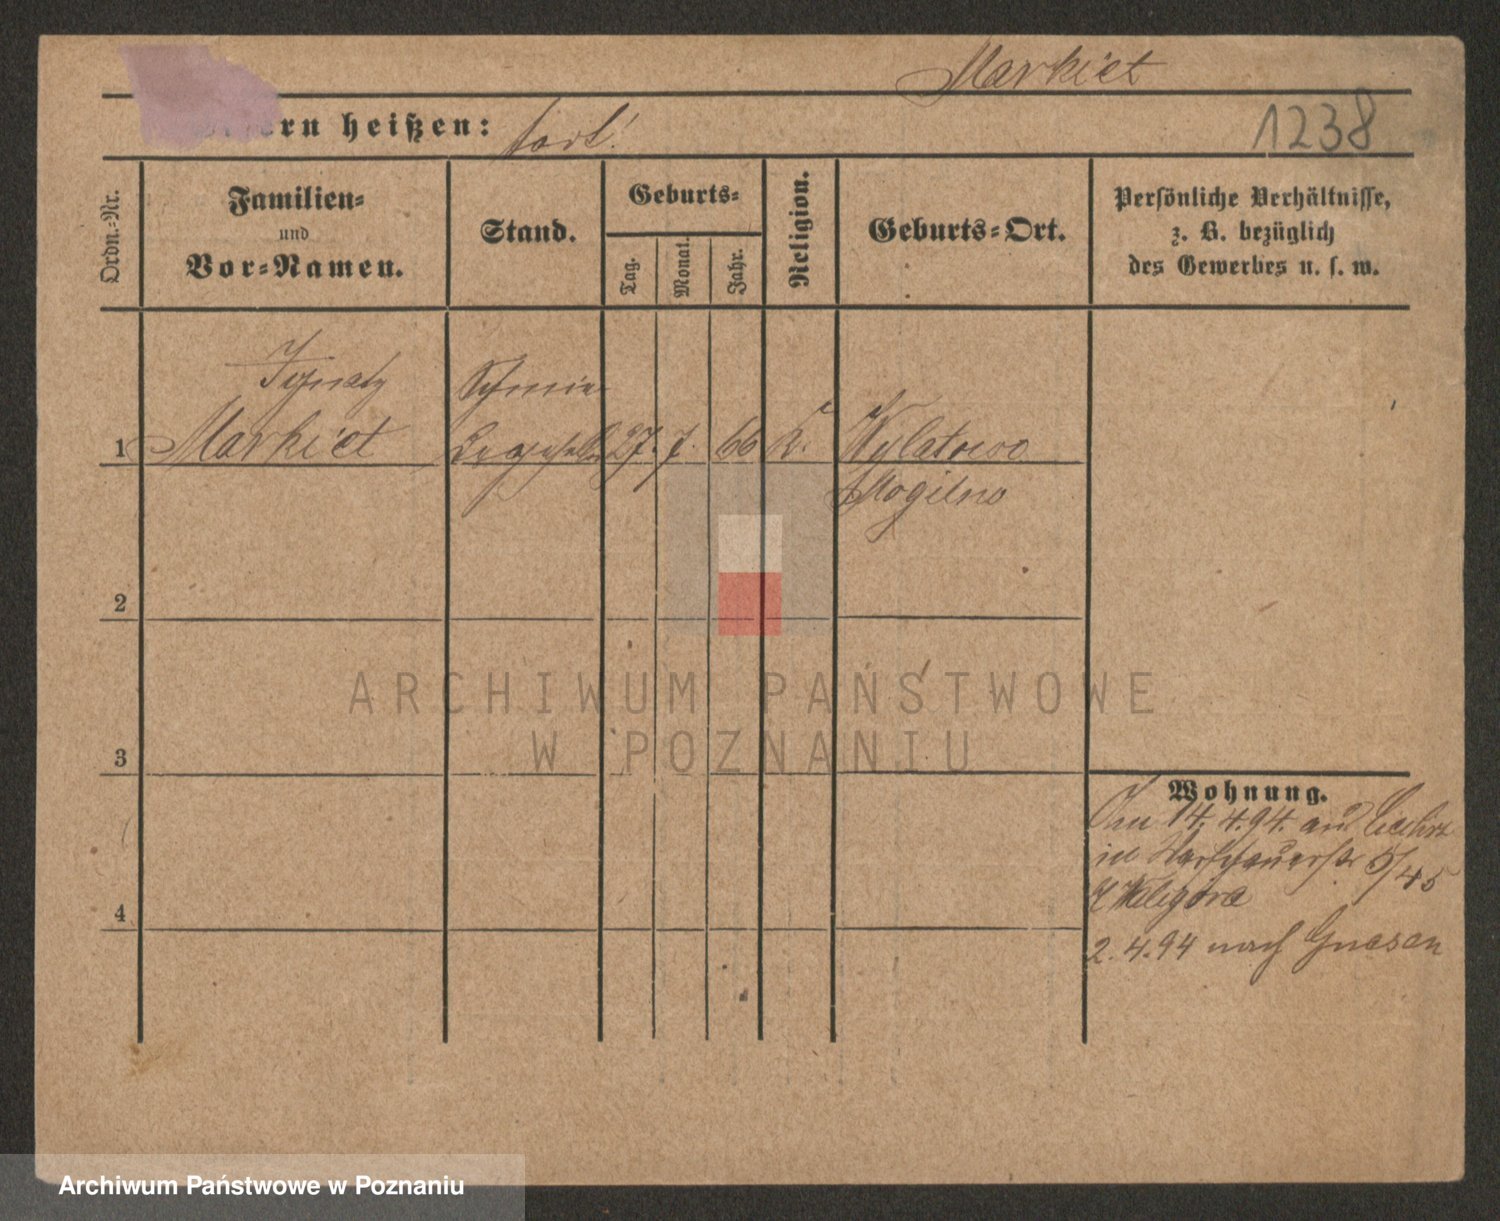 Markiet
1238
ern heißen: tot!
Ordn.-Nr.
Familien-
und
Vor-Namen.
Stand.
Geburts-
Tag.
Monat.
Jahr.
Religion.
Geburts-Ort.
Persönliche Verhältnisse,
z. B. bezüglich
des Gewerbes u. s. w.
Ignatz
Schmie
1 Markiet 27. 7. 66 k. Wylatowo
Mogilno
2
3
4
Wohnung.
14. 4. 94. aus
in Warschauerstr 5/45
2. 4. 94 nach Gnesen
ARCHIWUM PAŃSTWOWE
W POZNANIU
Archiwum Państwowe w Poznaniu